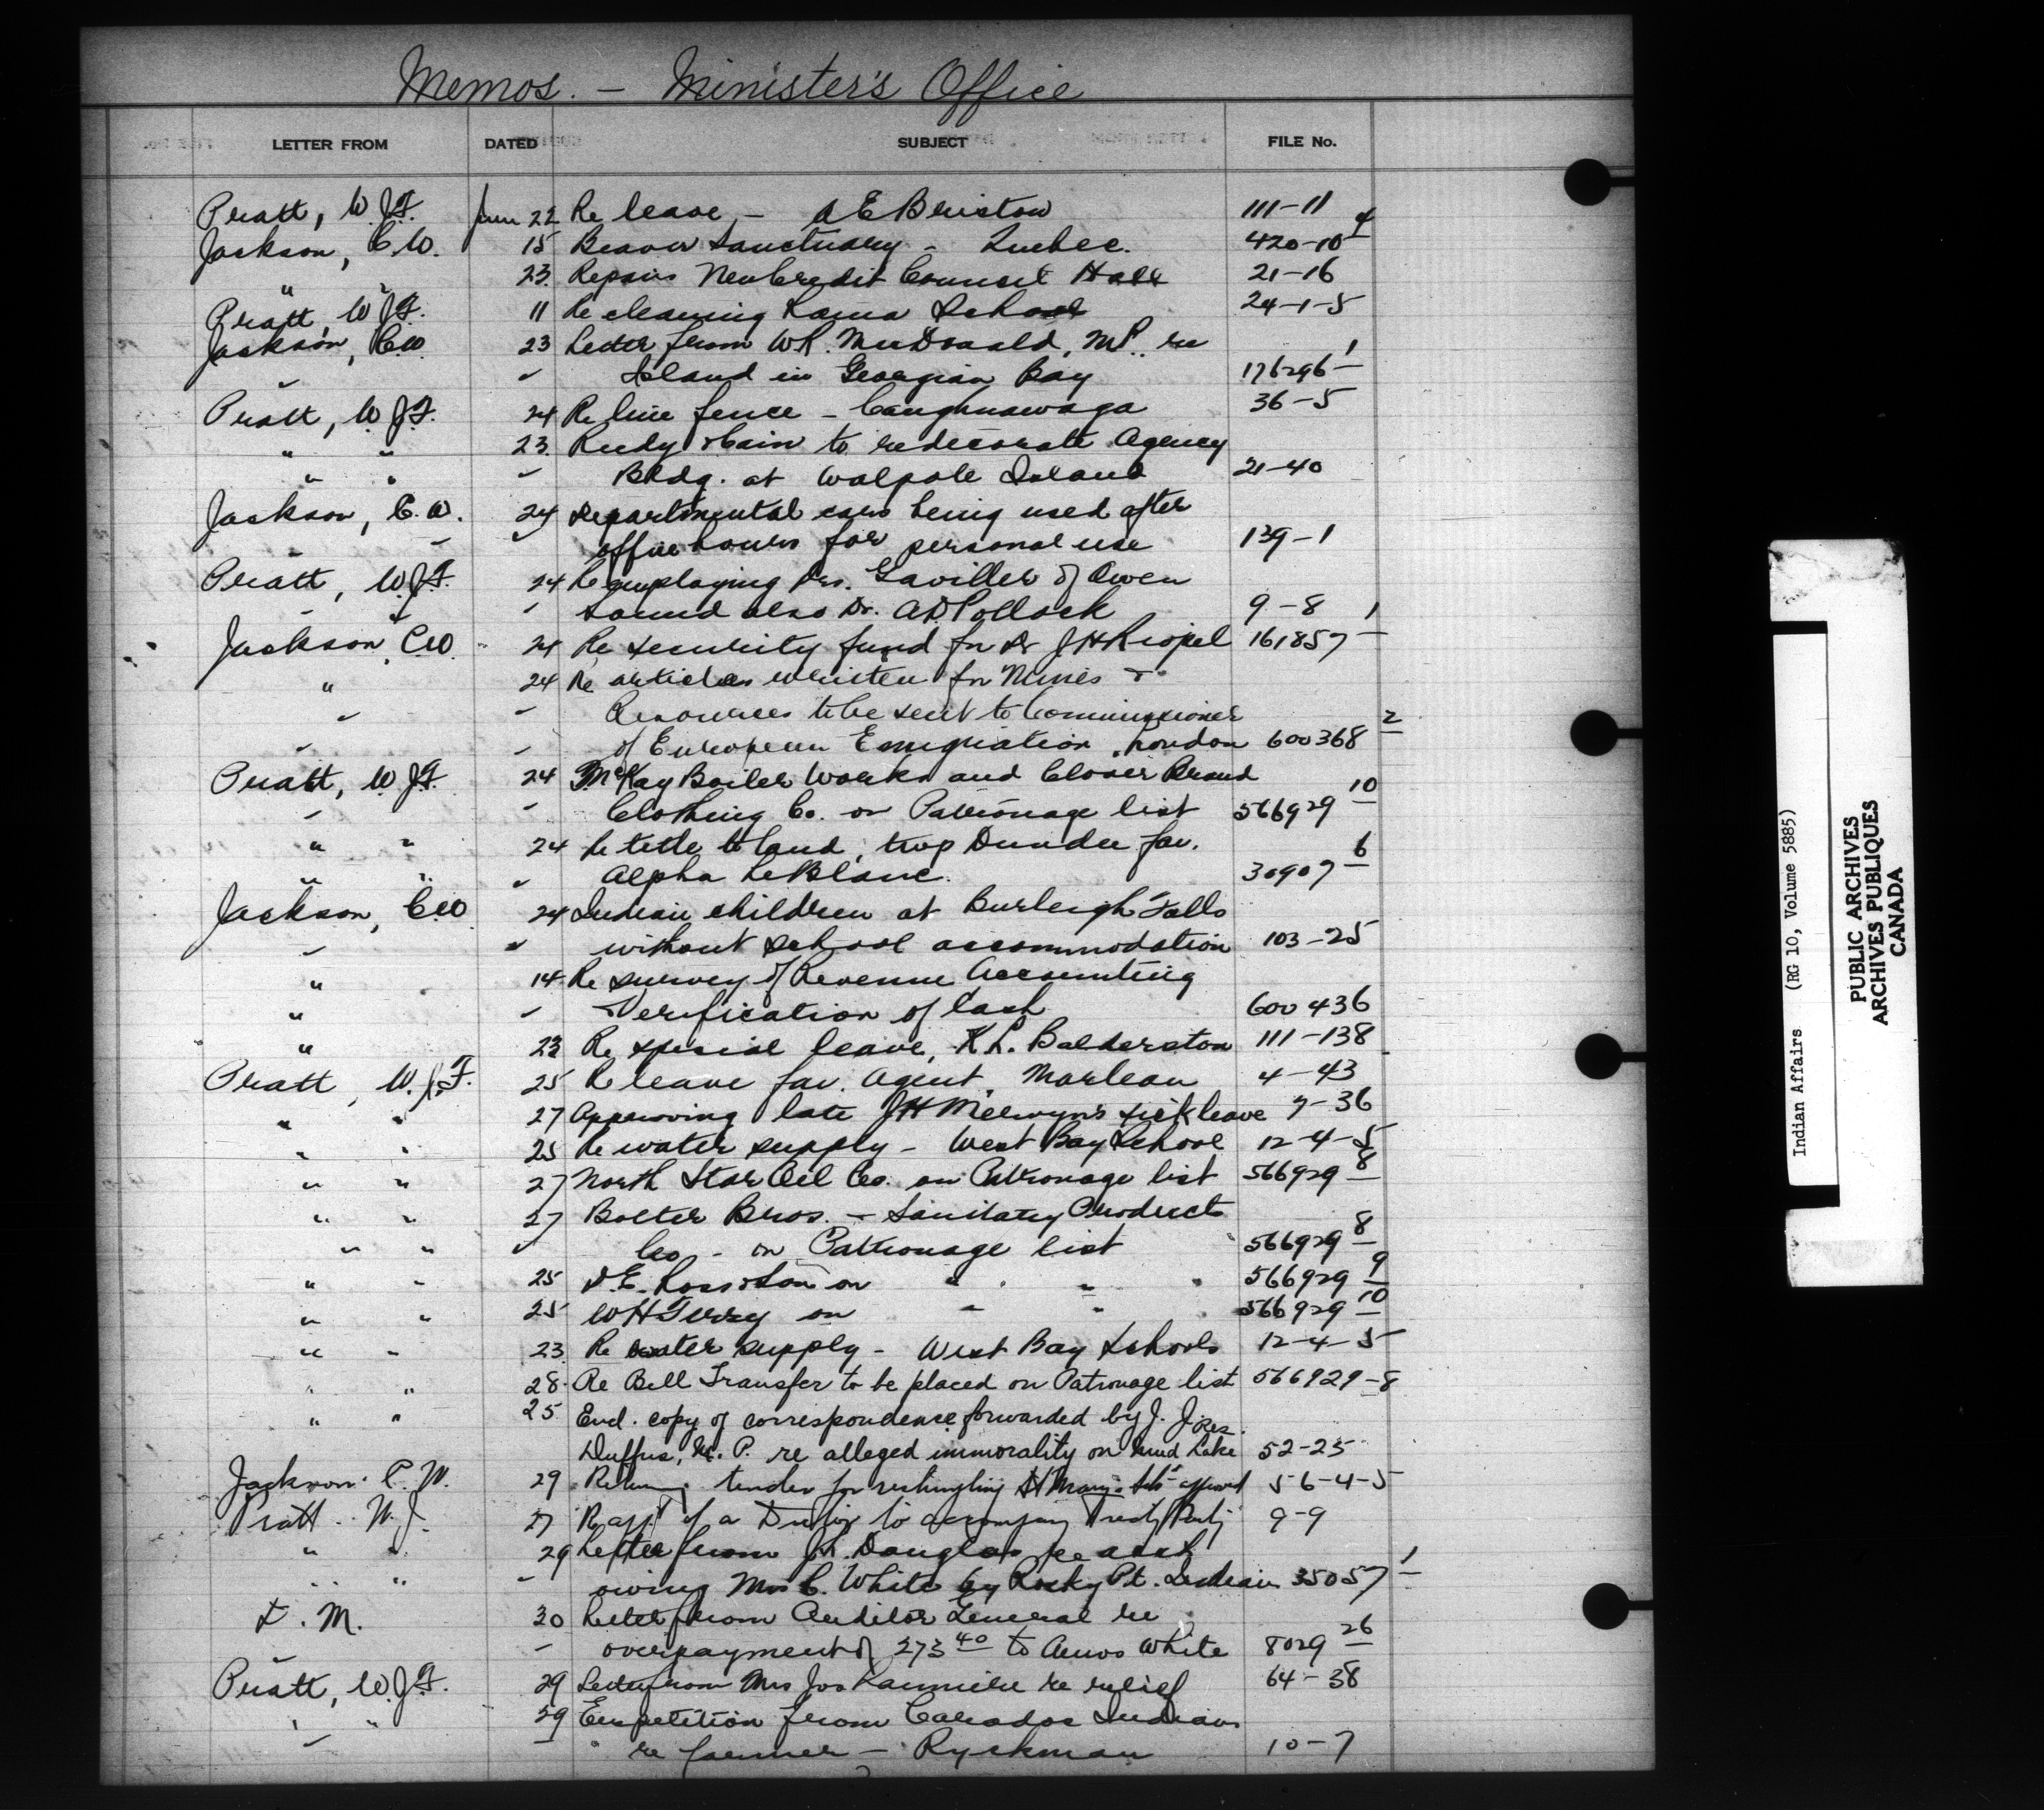 Memos. — Minister's Office
LETTER FROM DATED SUBJECT FILE No.
Pratt, W.J.F. Jun 22 Re leave, - A E Briston 111-11
Jackson, C.W. 15 Beaver Sanctuary - Quebec. 420-10 4
" " 23. Repairs New Credit Council Hall 21-16
Pratt, W.J.F. 11 Re cleaning Rama School 24-1-5
Jackson, C.W. 23 Letter from W.R. MacDonald, M.P. re
" " Island in Georgian Bay 176296 1
Pratt, W.J.F. 24 Re line fence - Caughnawaga 36-5
" " 23. Rudy & Cain to redecorate Agency
" " " Bldg. at Walpole Island 21-40
Jackson, C.W. 24 Departmental cars being used after
" " " office hours for personal use 139-1
Pratt, W.J.F. 24 Re employing Drs. Gaviller of Owen
" " " Sound also Dr. A.D. Pollock 9-8
Jackson, C.W. 24 Re security fund for Dr J H Riopel 161857 1
" 24 Re articles written for Mines &
" " Resources to be sent to Commissioner
" " of European Emigration, London 600368 2
Pratt, W.J.F. 24 McKay Boiler Works and Clover Brand
" " Clothing Co. on Patronage list 566929 10
" " 24 Re title to land, twp Dundee fav.
" " " Alpha LeBlanc. 30907 6
Jackson, C.W. 24 Indian children at Burleigh Falls
" " without school accommodation 103-25
" 14 Re survey of Revenue Accounting
" " & Verification of Cash 600436
" 23 Re special leave, K L. Balderston 111-138
Pratt, W.J.F. 25 Re leave fav. Agent, Marleau 4-43
" " 27 Approving late J H sick leave 7-36
" " 25 Re water supply - West Bay School 12-4-5
" " 27 North Star Oil Co. on Patronage list 566929 8
" " 27 Bolter Bros. - Sanitary Products
" " " Co - on Patronage list 566929 8
" " 25 D.E. Ross & Son on " " 566929 9
" " 25 W H on " " 566929 10
" " 23. Re water supply - West Bay Schools 12-4-5
" " 28. Re Bell Transfer to be placed on Patronage list 566929-8
" " 25 Encl. copy of correspondence forwarded by J. J.
Duffus, M. P. re alleged immorality on Mud Lake Res. 52-25
Jackson C. W. 29 Returning tender for reshingling St Mary's Sch 56-4-5
Pratt. W.J. 27 Re app't of a Doctor to accompany Treaty Party 9-9
" " 29 Letter from J.L. Douglas re acct
" " " owing Mrs C. White by Rocky Pt. Indians 35057 1
D. M. 30 Letter from Auditor General re
" " overpayment of 273 40 to Amos White 8029 26
Pratt, W.J.F. 29 Letter from Mrs Jos re relief 64-38
" " 29 petition from Caradoc Indians
" " re farmer - Ryckman 10-7
Indian Affairs (RG 10, Volume 5885)
PUBLIC ARCHIVES
ARCHIVES PUBLIQUES
CANADA